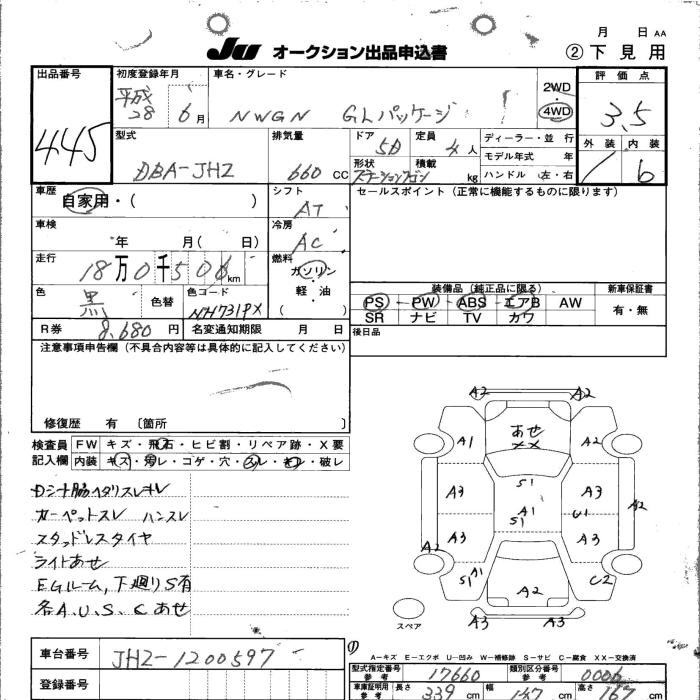 月 日 AA
JU オークション出品申込書 ②下見用
出品番号 初度登録年月 車名・グレード 2WD 評価点
445 平成28 6月 NWGN GLパッケージ ・ 4WD 3.5
型式 排気量 ドア 定員 ディーラー・並 行 外装 内装
DBA-JH2 660 CC 5D 4人 モデル年式 年
形状 積載 ハンドル 左・右 b
ステーションワゴン kg
車歴 シフト セールスポイント (正常に機能するものに限ります)
自家用・( ) AT
車検 冷房
年 月( 日) AC
走行 燃料
18万0千500km ガソリン・軽・油
装備品 (純正品に限る) 新車保証書
色 色替 色コード PS PW ABS エアB AW 有・無
黒 NH731PX SR ナビ TV カワ
R券 8,680円 名変通知期限 月 日 後日品
注意事項申告欄 (不具合内容等は具体的に記入してください)
修復歴 有 〔箇所 〕
検査員 FW キズ・飛石・ヒビ割・リペア跡・X要
記入欄 内装 キズ・汚レ・コゲ・穴・スレ・切レ・破レ
Dシート脇ヘタリスレキレ
カーペットスレ ハンスレ
スタッドレスタイヤ
ライトあせ
EGルーム,下廻りS有
各A、U、S、Cあせ
A2 A2
A1 あせ A2
XX
A3 S1 A3 A2
A1 U1
S1
A3 A3
A2
S1 A1 A2 C2
A3 A3
スペア
A-キズ E-エクボ U-凹み W-補修跡 S-サビ C-腐食 XX-交換済
車台番号 JH2-1200597
登録番号
型式指定番号 参考 17660 類別区分番号 参考 0006
車庫証明用 参考 長さ 339 cm 幅 147 cm 高さ 167 cm